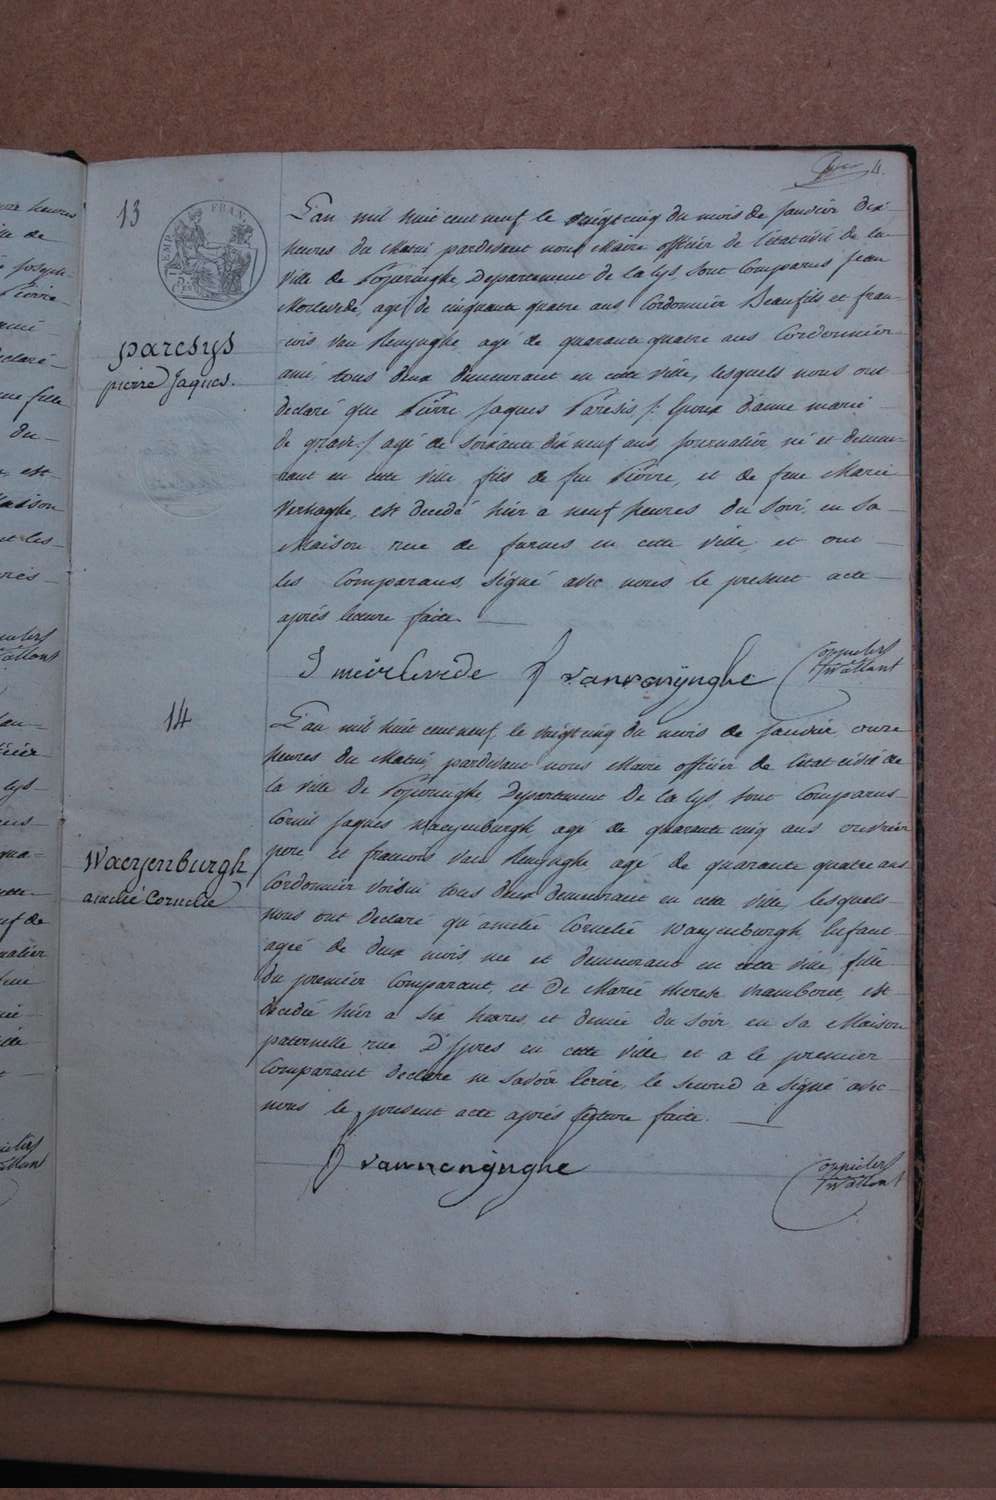 4.
13
TIMP. EMP. FRAN.
L'an mil huit cent neuf le vingtcinq du mois de janvier dix
heures du Matin pardevant nous Maire officier de l'état civil de la
Ville de Poperinghe, Departement de la lys sont Comparus Jean
Merlevede, agé de cinquante quatre ans Cordonnier Beaufils et fran-
cois van Renynghe, agé de quarante quatre ans Cordonnier
ami, tous deux demeurant en cette ville, lesquels nous ont
declaré que Pierre Jaques Paresis /: Epoux d'anne marie
de grave :/ agé de soixante dix neuf ans, journalier, né et demeu-
rant en cette ville fils de feu Pierre, et de feue Marie
Verhaghe, est decedé hier a neuf heures du soir, en sa
Maison rue de furnes en cette ville, et ont
les Comparans, signé avec nous le present acte
aprés lecture faite.
paresys
pierre Jaques.
J merlevede
F vanrenynghe
14
L'an mil huit cent neuf le vingtcinq du mois de janvier, onze
heures du Matin, pardevant nous Maire officier de l'état civil de
la ville de Poperinghe, Departement de la lys, sont Comparus
Corneil Jaques Waeyenburgh agé de quarante cinq ans ouvrier
pere et francois van Renynghe agé de quarante quatre ans
Cordonnier Voisin tous deux demeurant en cette ville lesquels
nous ont declaré qu'amelié Cornelié Waeyenburgh Enfant
ageé de deux mois neé et demeurant en cette ville, fille
du premier Comparant, et de Marie therese
decedée hier a six heures et demie du soir en sa Maison
paternelle rue D'Ypres en cette ville et a le premier
Comparant declaré ne savoir Ecrire, le second a signé avec
nous le present acte aprés lecture faite.
Waeyenburgh
amelié Cornelie
F vanrenynghe